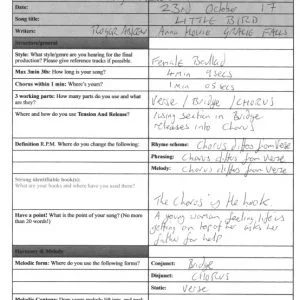 Date: 23rd October 17
Song title: LITTLE BIRD
Writers: Anna Howie GRACIE FALLS
Structure/general
Style: What style/genre are you hearing for the final production? Please give reference tracks if possible. Female Ballad
Max 3min 30s: How long is your song? 4min 9secs
Chorus within 1 min: Where's yours? 1min 05secs
3 working parts: How many parts do you use and what are they? Verse / Bridge / CHORUS
Where and how do you use Tension And Release? rising section in Bridge
releases into Chorus
Definition R.P.M. Where do you change the following: Rhyme scheme: Chorus differs from Verse
Phrasing: Chorus differs from Verse
Melody: Chorus differs from Verse
Strong identifiable hook(s):
What are your hooks and where have you used them?
The Chorus is the hook.
Have a point! What is the point of your song? (No more than 20 words!) A young woman, feeling life is
getting on top of her asks her
father for help
Harmony & Melody
Melodic form: Where do you use the following forms? Conjunct: Bridge
Disjunct: CHORUS
Static: Verse